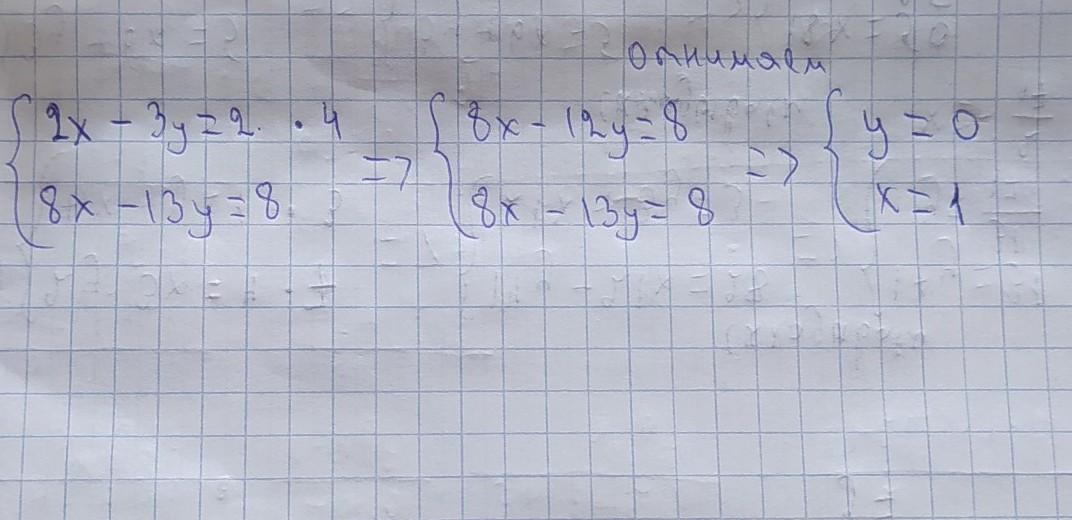 отнимаем
2x - 3y = 2 · 4 => 8x - 12y = 8 => y = 0
8x - 13y = 8 8x - 13y = 8 x = 1